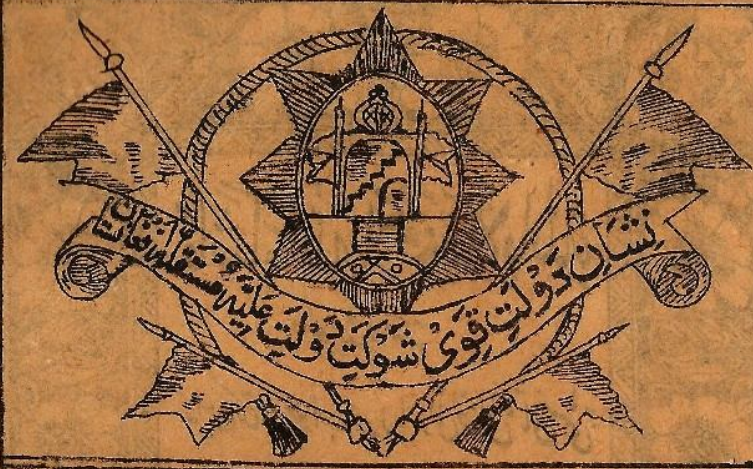 نِشَانِ دَوْلَتِ قَوِیْ شَوْکَتِ دَوْلَتِ عَلِیَّهٔ مُسْتَقِلَّهٔ افغانستان